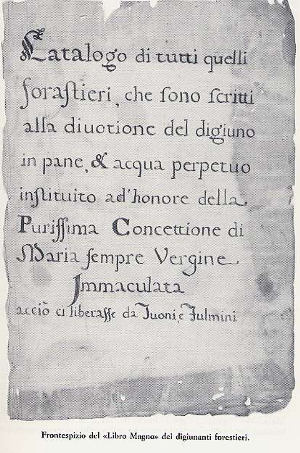 Catalogo di tutti quelli
foraſtieri, che ſono ſcritti
alla diuotione del digiuno
in pane, & acqua perpetuo
inſtituito ad'honore della
Puriſſima Concettione di
Maria ſempre Vergine
Immaculata
acciò ci liberaſſe da Tuoni e Fulmini
Frontespizio del «Libro Magno» dei digiunanti forestieri.